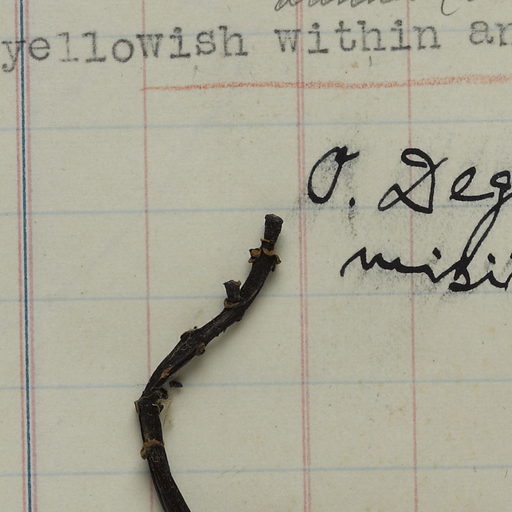 yellowish within an
O. Deg
misi